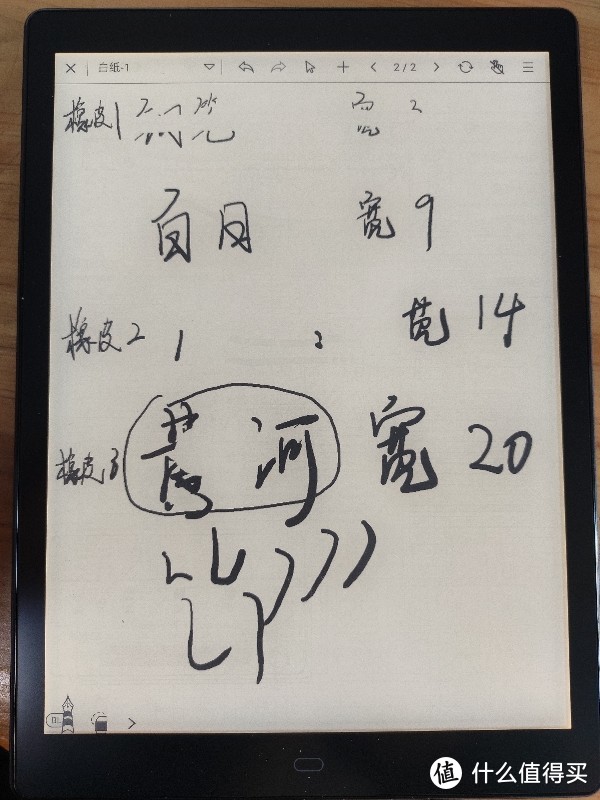 白纸-1 2/2
橡皮1 宽 2
百日 宽 9
橡皮2 1 2 宽 14
橡皮3 河 宽 20
值 什么值得买